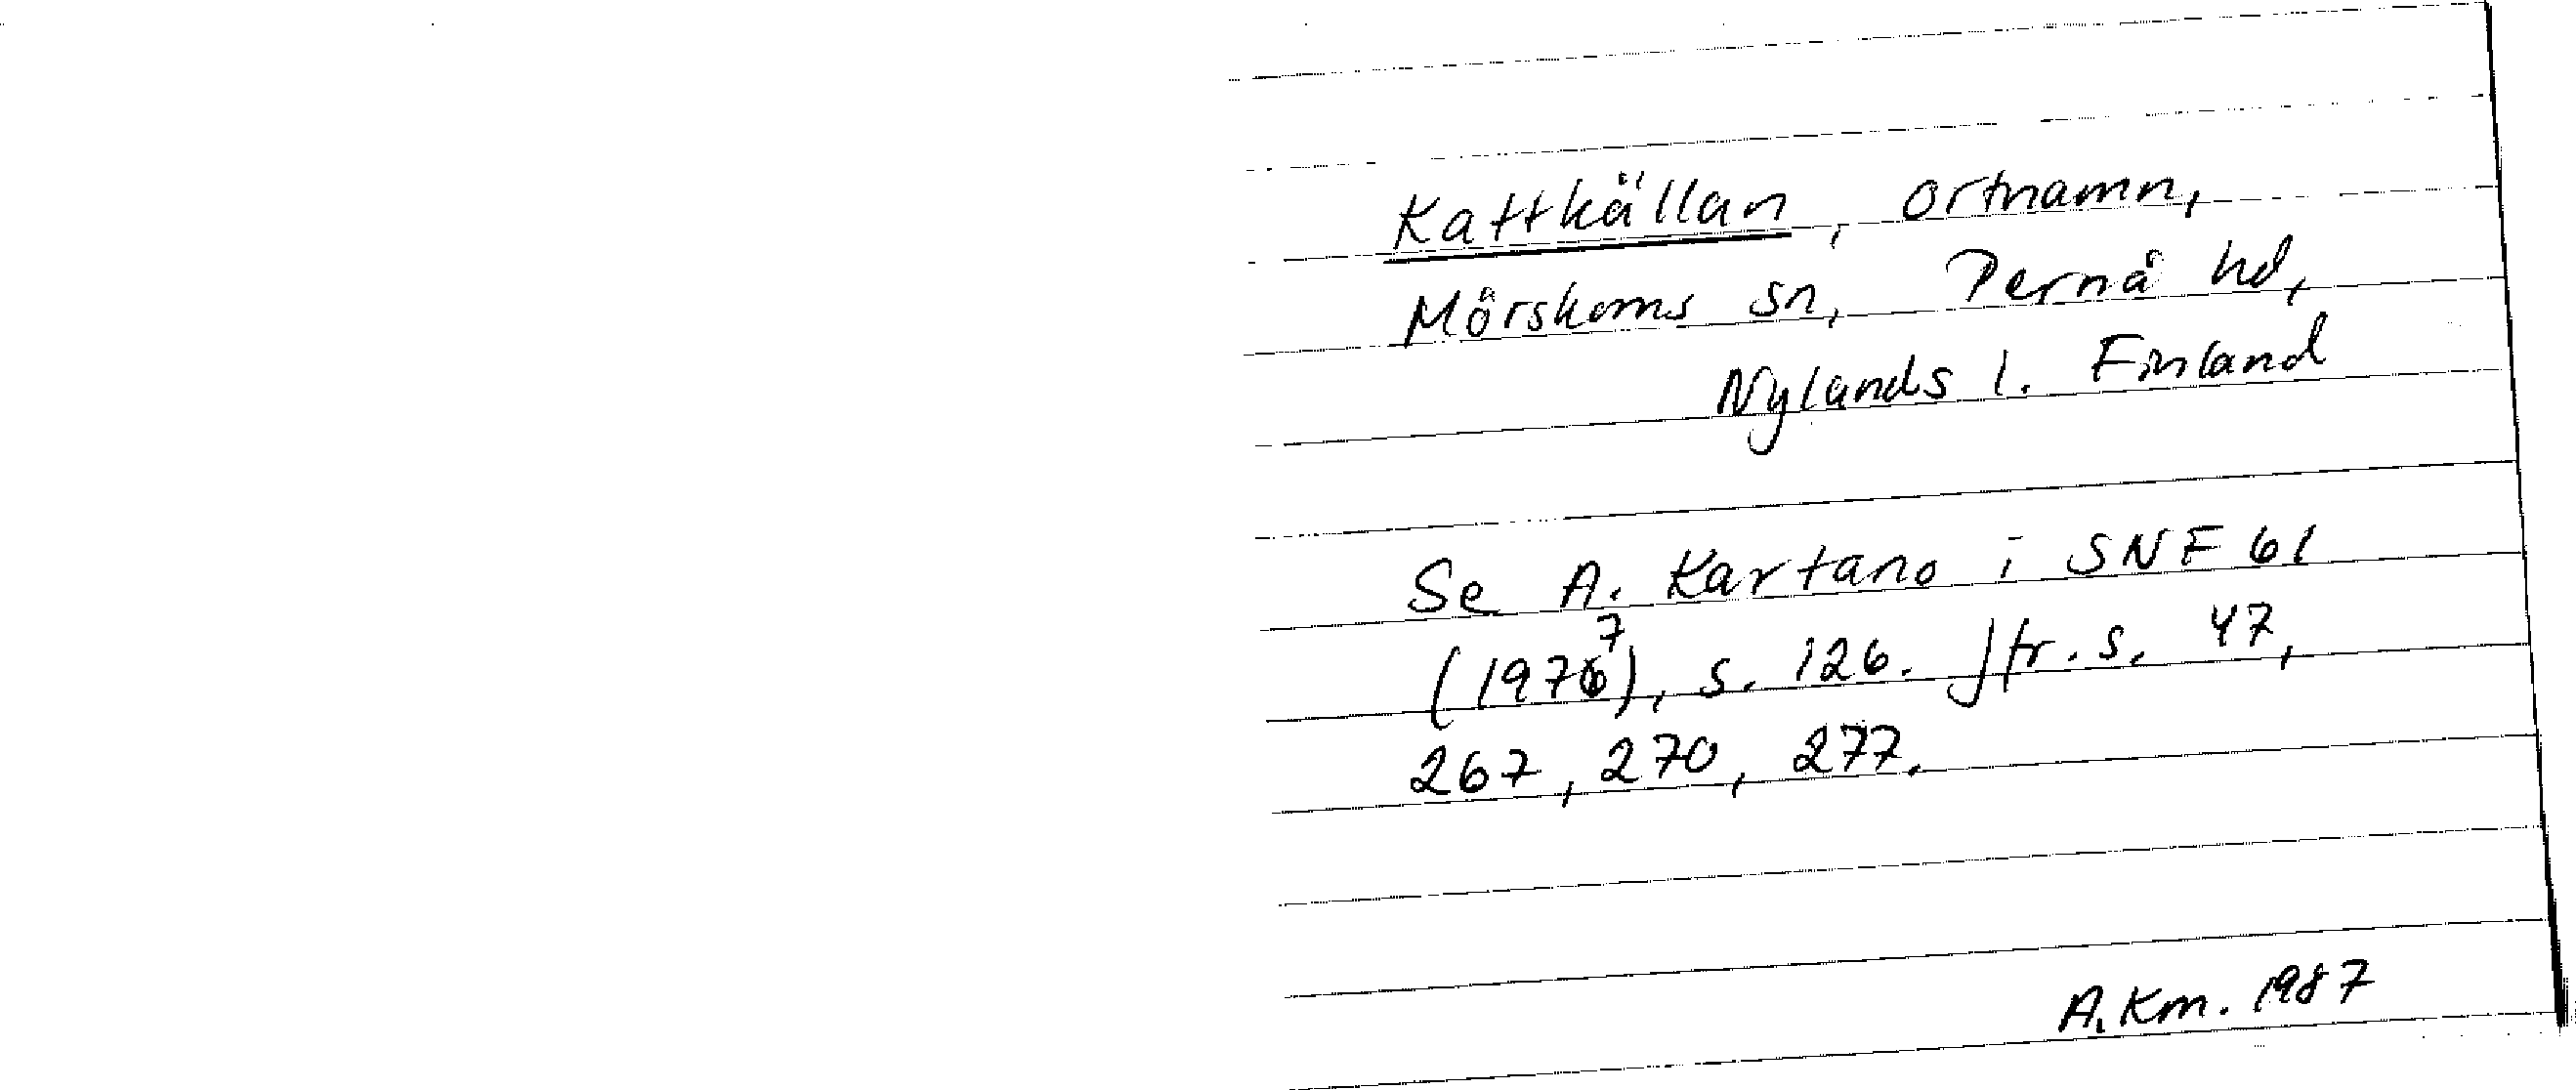 Kattkällan, ortnamn,
Mörskoms sn, Pernå hd,
Nylands l. Finland
Se A. Kartano i SNF 61
(1977), s. 126. Jfr. s. 47,
267, 270, 277.
A. Km. 1987